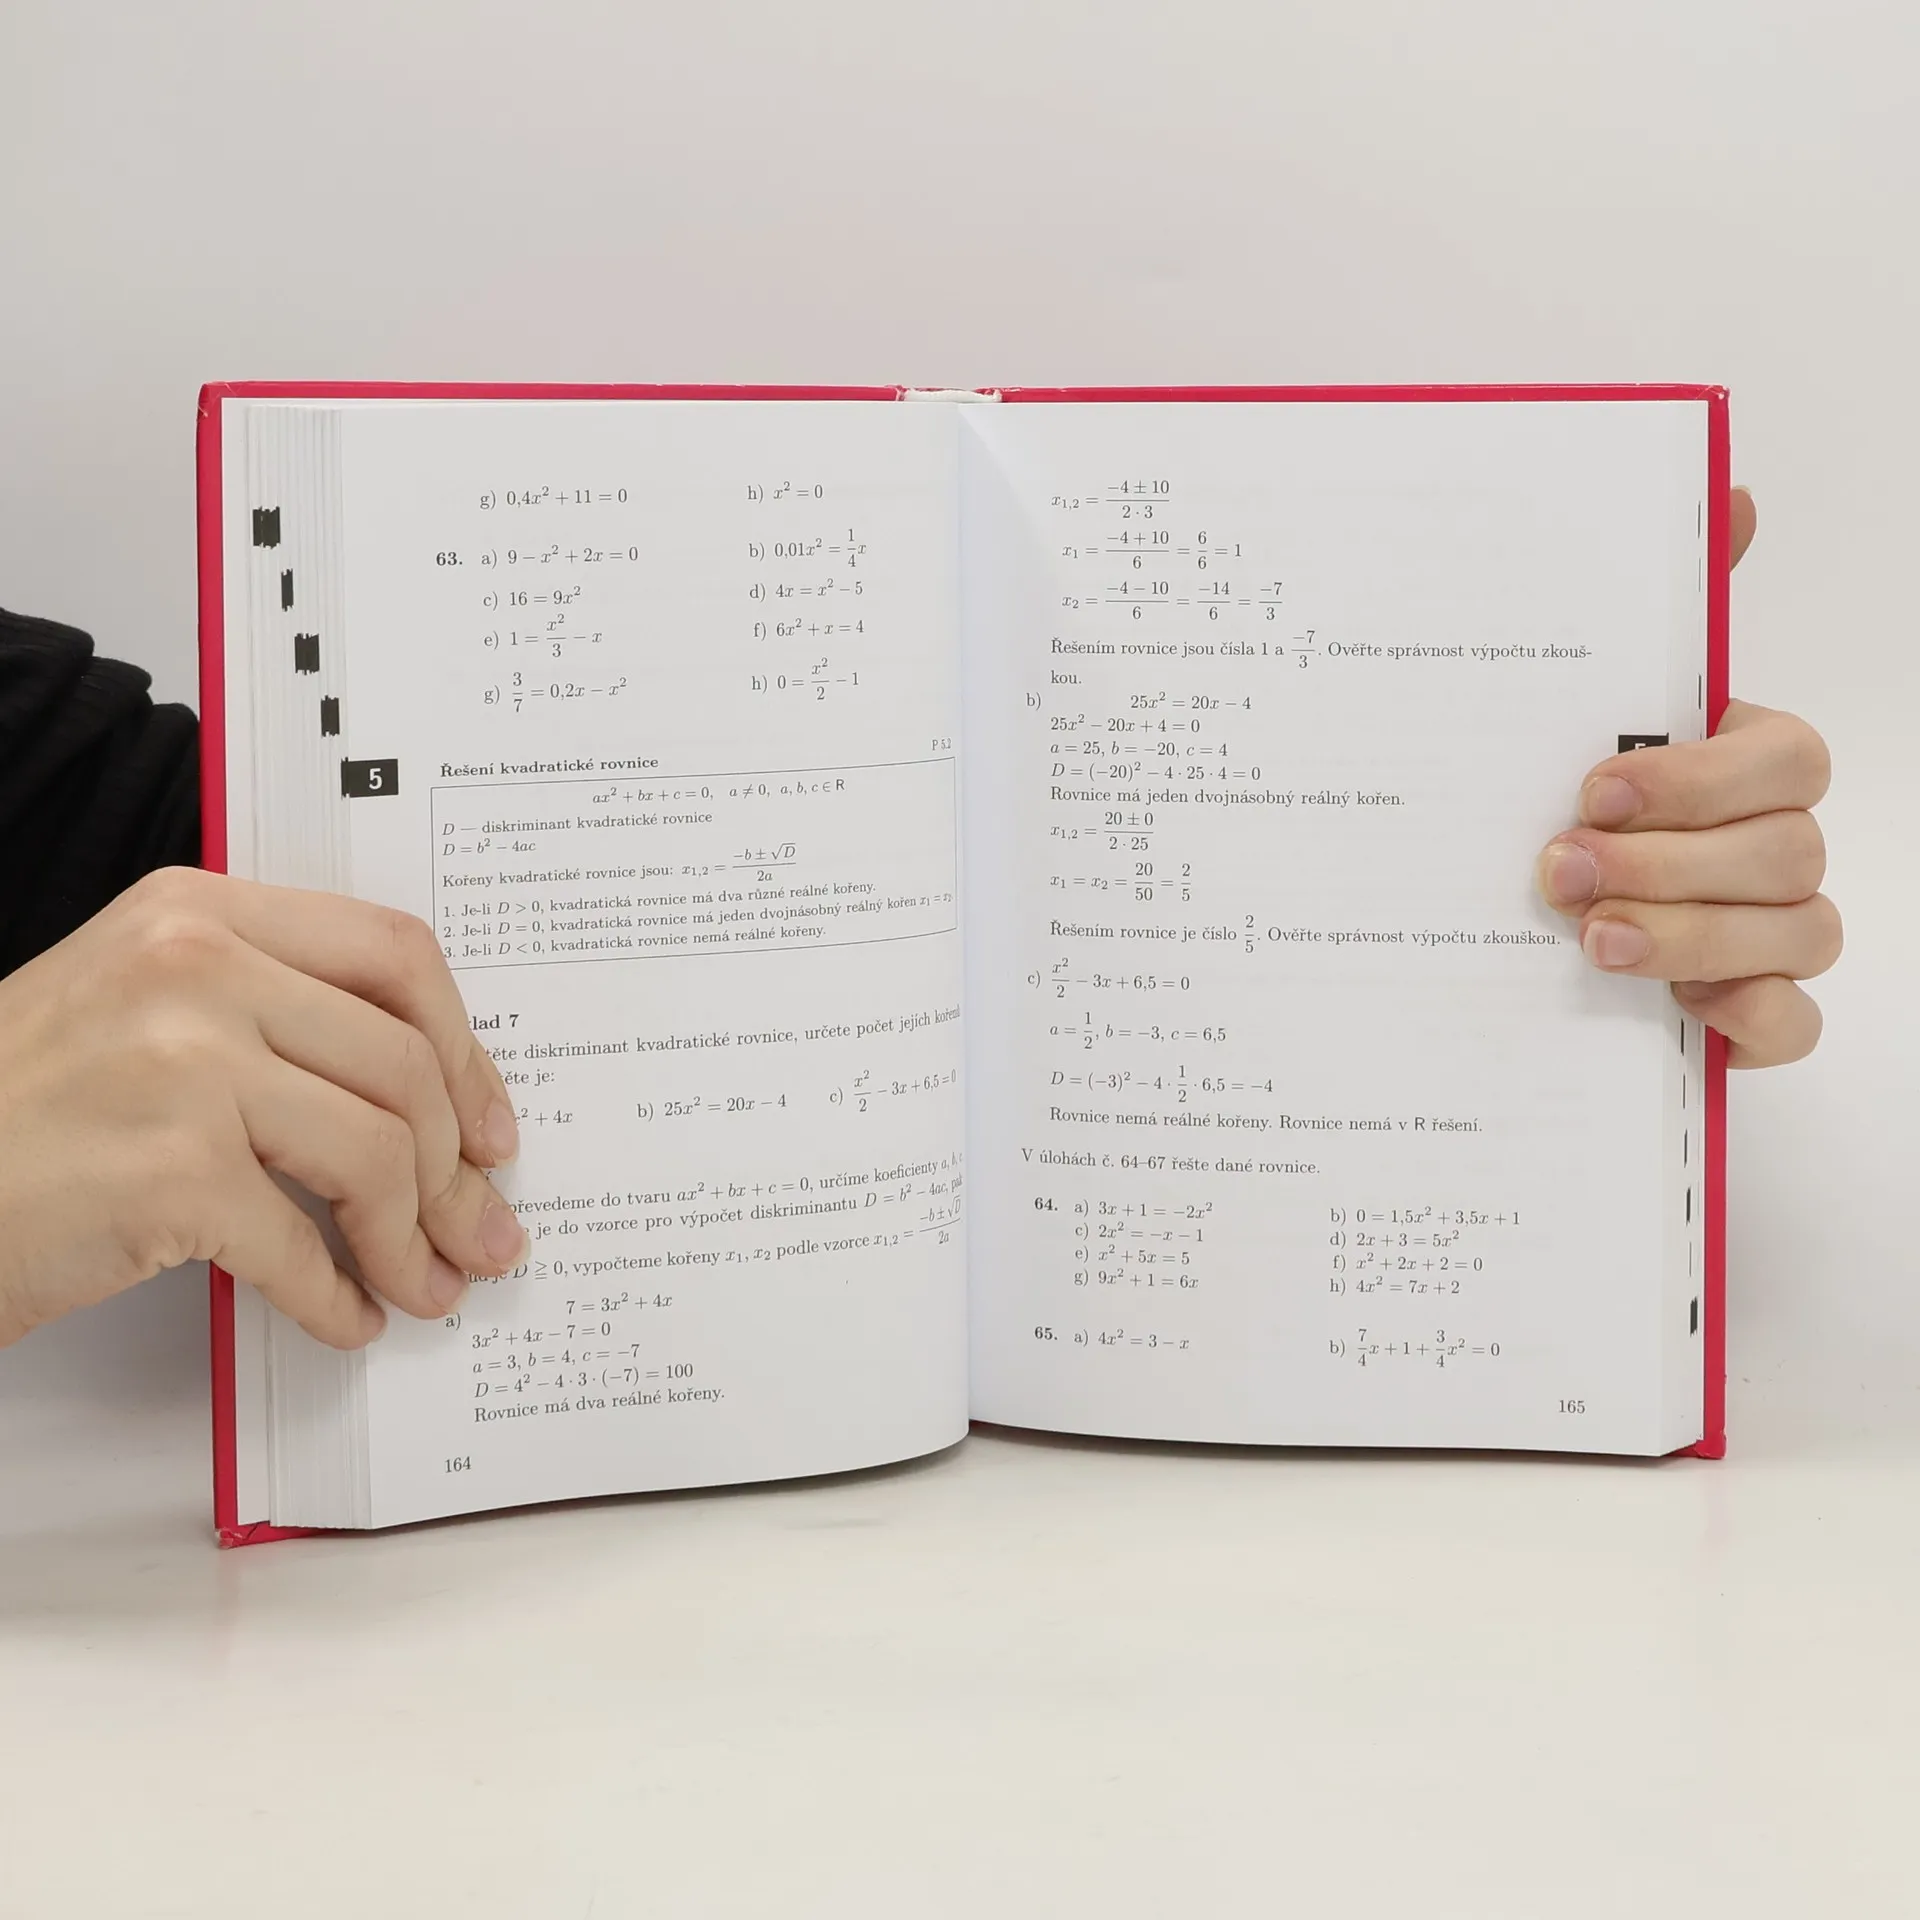 g) 0,4x² + 11 = 0 h) x² = 0
63. a) 9 − x² + 2x = 0 b) 0,01x² = 1/4 x
c) 16 = 9x² d) 4x = x² − 5
e) 1 = x²/3 − x f) 6x² + x = 4
g) 3/7 = 0,2x − x² h) 0 = x²/2 − 1
P 5.2
5
Řešení kvadratické rovnice
ax² + bx + c = 0, a ≠ 0, a, b, c ∈ R
D — diskriminant kvadratické rovnice
D = b² − 4ac
Kořeny kvadratické rovnice jsou: x₁,₂ = (−b ± √D)/2a
1. Je-li D > 0, kvadratická rovnice má dva různé reálné kořeny.
2. Je-li D = 0, kvadratická rovnice má jeden dvojnásobný reálný kořen x₁ = x₂.
3. Je-li D < 0, kvadratická rovnice nemá reálné kořeny.
lad 7
těte diskriminant kvadratické rovnice, určete počet jejích kořenů
ěte je:
x² + 4x b) 25x² = 20x − 4 c) x²/2 − 3x + 6,5 = 0
převedeme do tvaru ax² + bx + c = 0, určíme koeficienty a, b, c
je do vzorce pro výpočet diskriminantu D = b² − 4ac,
je D ≧ 0, vypočteme kořeny x₁, x₂ podle vzorce x₁,₂ = (−b ± √D)/2a
a) 7 = 3x² + 4x
3x² + 4x − 7 = 0
a = 3, b = 4, c = −7
D = 4² − 4 · 3 · (−7) = 100
Rovnice má dva reálné kořeny.
164
x₁,₂ = (−4 ± 10)/(2 · 3)
x₁ = (−4 + 10)/6 = 6/6 = 1
x₂ = (−4 − 10)/6 = −14/6 = −7/3
Řešením rovnice jsou čísla 1 a −7/3. Ověřte správnost výpočtu zkouš-
kou.
b) 25x² = 20x − 4
25x² − 20x + 4 = 0
a = 25, b = −20, c = 4
D = (−20)² − 4 · 25 · 4 = 0
Rovnice má jeden dvojnásobný reálný kořen.
x₁,₂ = (20 ± 0)/(2 · 25)
x₁ = x₂ = 20/50 = 2/5
Řešením rovnice je číslo 2/5. Ověřte správnost výpočtu zkouškou.
c) x²/2 − 3x + 6,5 = 0
a = 1/2, b = −3, c = 6,5
D = (−3)² − 4 · 1/2 · 6,5 = −4
Rovnice nemá reálné kořeny. Rovnice nemá v R řešení.
V úlohách č. 64–67 řešte dané rovnice.
64. a) 3x + 1 = −2x² b) 0 = 1,5x² + 3,5x + 1
c) 2x² = −x − 1 d) 2x + 3 = 5x²
e) x² + 5x = 5 f) x² + 2x + 2 = 0
g) 9x² + 1 = 6x h) 4x² = 7x + 2
65. a) 4x² = 3 − x b) 7/4 x + 1 + 3/4 x² = 0
165